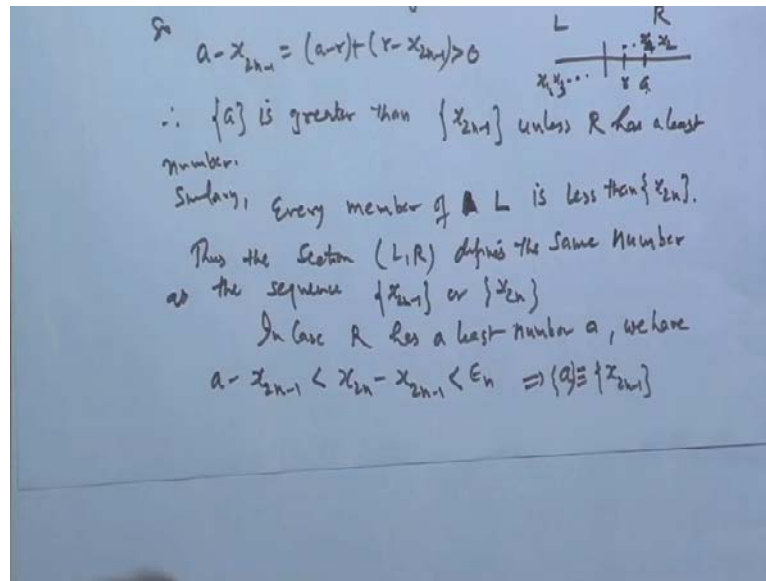 So
L R
a - x_{2n-1} = (a-r) + (r - x_{2n-1}) > 0
.. x_4 x_2
x_1 x_3 ... r a
∴ {a} is greater than {x_{2n-1}} unless R has a least
number.
Similarly, Every member of L is less than {x_{2n}}.
Thus the Section (L, R) defines the same number
as the sequence {x_{2n-1}} or {x_{2n}}
In case R has a least number a, we have
a - x_{2n-1} < x_{2n} - x_{2n-1} < ε_n ⇒ {a} ≡ {x_{2n-1}}